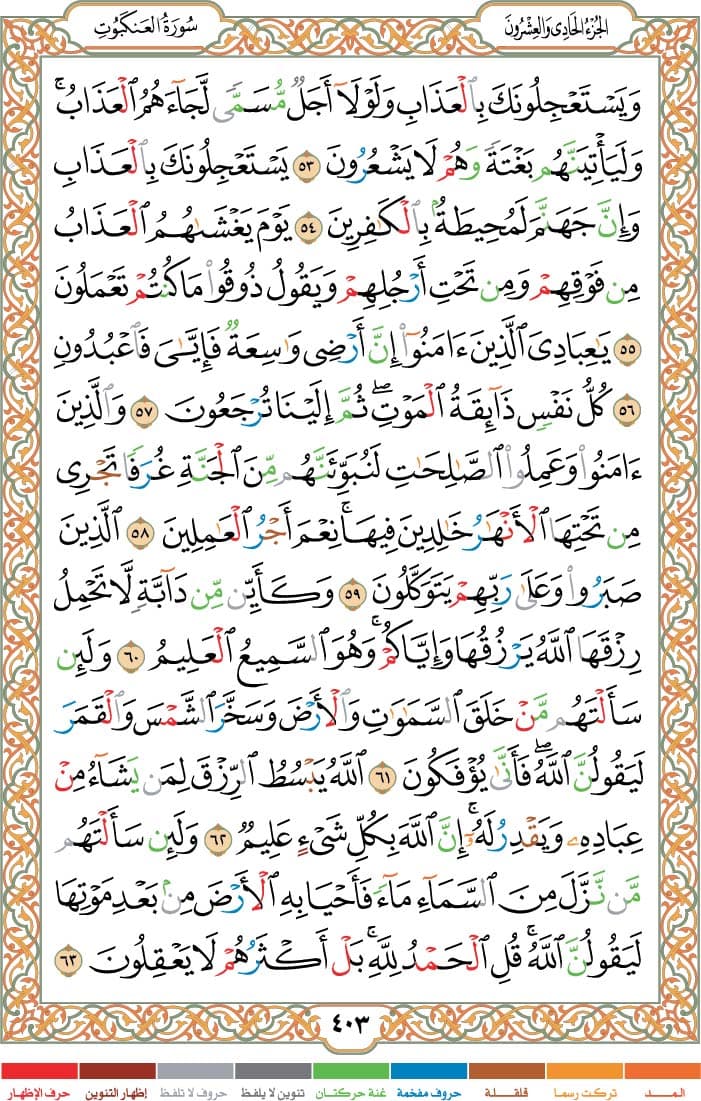 الجُزْءُ الحَادِى وَالعِشْرُونَ
سُورَةُ العَنكَبُوتِ
وَيَسْتَعْجِلُونَكَ بِالْعَذَابِ وَلَوْلَآ أَجَلٌ مُّسَمًّى لَّجَآءَهُمُ الْعَذَابُ ۚ
وَلَيَأْتِيَنَّهُم بَغْتَةً وَهُمْ لَا يَشْعُرُونَ ٥٣ يَسْتَعْجِلُونَكَ بِالْعَذَابِ
وَإِنَّ جَهَنَّمَ لَمُحِيطَةٌۢ بِالْكَٰفِرِينَ ٥٤ يَوْمَ يَغْشَىٰهُمُ الْعَذَابُ
مِن فَوْقِهِمْ وَمِن تَحْتِ أَرْجُلِهِمْ وَيَقُولُ ذُوقُوا۟ مَا كُنتُمْ تَعْمَلُونَ
٥٥ يَٰعِبَادِىَ الَّذِينَ ءَامَنُوٓا۟ إِنَّ أَرْضِى وَٰسِعَةٌ فَإِيَّٰىَ فَاعْبُدُونِ
٥٦ كُلُّ نَفْسٍ ذَآئِقَةُ الْمَوْتِ ۖ ثُمَّ إِلَيْنَا تُرْجَعُونَ ٥٧ وَالَّذِينَ
ءَامَنُوا۟ وَعَمِلُوا۟ الصَّٰلِحَٰتِ لَنُبَوِّئَنَّهُم مِّنَ الْجَنَّةِ غُرَفًا تَجْرِى
مِن تَحْتِهَا الْأَنْهَٰرُ خَٰلِدِينَ فِيهَا ۚ نِعْمَ أَجْرُ الْعَٰمِلِينَ ٥٨ الَّذِينَ
صَبَرُوا۟ وَعَلَىٰ رَبِّهِمْ يَتَوَكَّلُونَ ٥٩ وَكَأَيِّن مِّن دَآبَّةٍ لَّا تَحْمِلُ
رِزْقَهَا اللَّهُ يَرْزُقُهَا وَإِيَّاكُمْ ۚ وَهُوَ السَّمِيعُ الْعَلِيمُ ٦٠ وَلَئِن
سَأَلْتَهُم مَّنْ خَلَقَ السَّمَٰوَٰتِ وَالْأَرْضَ وَسَخَّرَ الشَّمْسَ وَالْقَمَرَ
لَيَقُولُنَّ اللَّهُ ۖ فَأَنَّىٰ يُؤْفَكُونَ ٦١ اللَّهُ يَبْسُطُ الرِّزْقَ لِمَن يَشَآءُ مِنْ
عِبَادِهِۦ وَيَقْدِرُ لَهُۥٓ ۚ إِنَّ اللَّهَ بِكُلِّ شَىْءٍ عَلِيمٌ ٦٢ وَلَئِن سَأَلْتَهُم
مَّن نَّزَّلَ مِنَ السَّمَآءِ مَآءً فَأَحْيَا بِهِ الْأَرْضَ مِنۢ بَعْدِ مَوْتِهَا
لَيَقُولُنَّ اللَّهُ ۚ قُلِ الْحَمْدُ لِلَّهِ ۚ بَلْ أَكْثَرُهُمْ لَا يَعْقِلُونَ ٦٣
٤٠٣
المــد تركت رسما قلقـلة حروف مفخمة غنة حركتان تنوين لا يلفظ حروف لا تلفظ إظهار التنوين حرف الإظهار